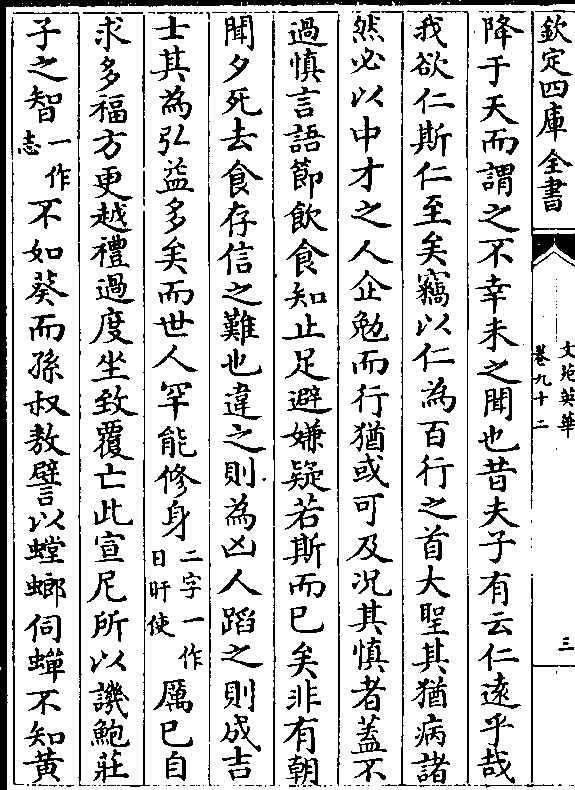 欽定四庫全書
文苑英華
卷九十二
三
降于天而謂之不幸未之聞也昔夫子有云仁遠乎哉
我欲仁斯仁至矣竊以仁為百行之首大聖其猶病諸
然必以中才之人企勉而行猶或可及況其慎者蓋不
過慎言語節飲食知止足避嫌疑若斯而已矣非有朝
聞夕死去食存信之難也違之則為凶人蹈之則成吉
士其為弘益多矣而世人罕能修身二字一作日旰使厲已自
求多福方更越禮過度坐致覆亡此宣尼所以譏鮑莊
子之智一作志不如葵而孫叔敖譬以螳螂伺蟬不知黃